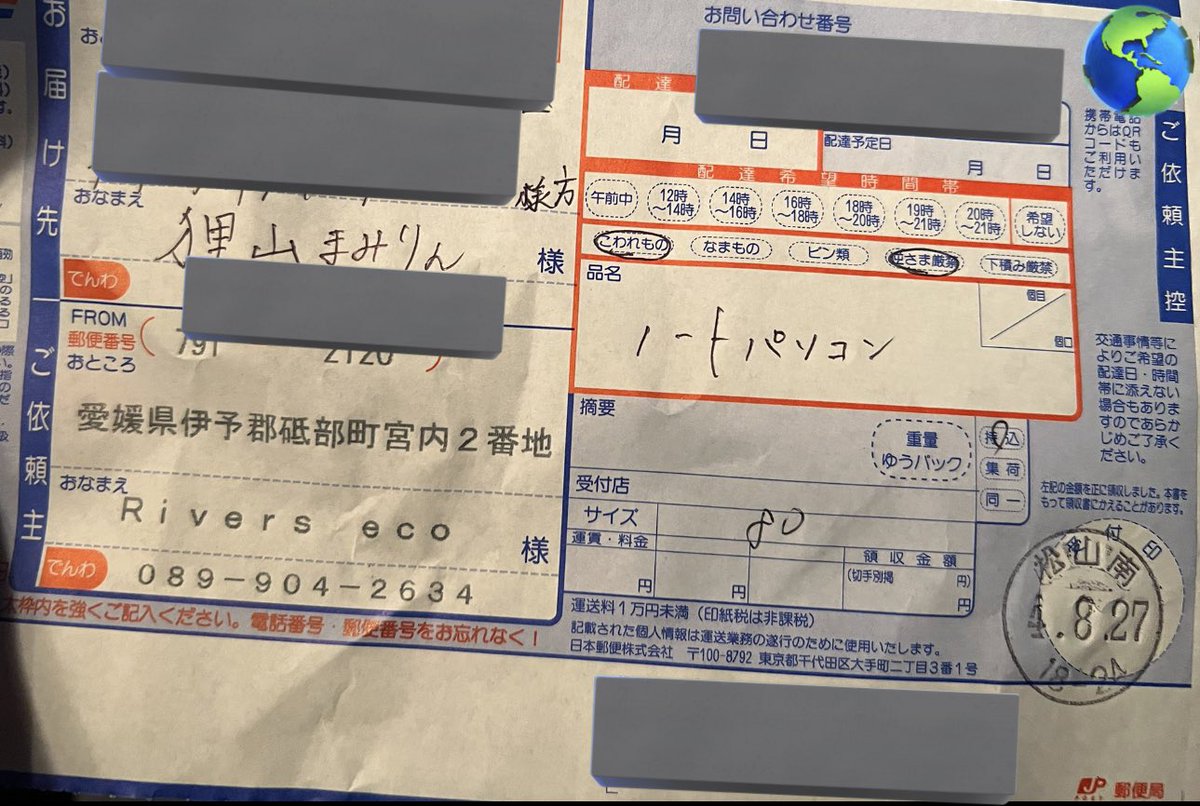 お届け先
おなまえ
様方
狸山まみりん 様
でんわ
ご依頼主
FROM
郵便番号
( 791 2120 )
おところ
愛媛県伊予郡砥部町宮内2番地
おなまえ
Rivers eco 様
でんわ
089-904-2634
太枠内を強くご記入ください。電話番号・郵便番号をお忘れなく！
お問い合わせ番号
配達
月 日
配達予定日
月 日
配達希望時間帯
午前中
12時～14時
14時～16時
16時～18時
18時～20時
19時～21時
20時～21時
希望しない
こわれもの
なまもの
ビン類
逆さま厳禁
下積み厳禁
品名
個目
個口
ノートパソコン
摘要
重量
ゆうパック
持込
集荷
同一
受付店
サイズ 80
運賃・料金
円
円
領収金額
(切手別掲 円)
円
運送料1万円未満（印紙税は非課税）
記載された個人情報は運送業務の遂行のために使用いたします。
日本郵便株式会社 〒100-8792 東京都千代田区大手町二丁目3番1号
携帯電話
からはQR
コードも
ご利用い
ただけま
す。
ご依頼主控
交通事情等に
よりご希望の
配達日・時間
帯に添えない
場合もありま
すのであらか
じめご了承く
ださい。
左記の金額を正に領収しました。本書を
もって領収書にかえることがあります。
受付印
松山南
8.27
18-24
JP 郵便局